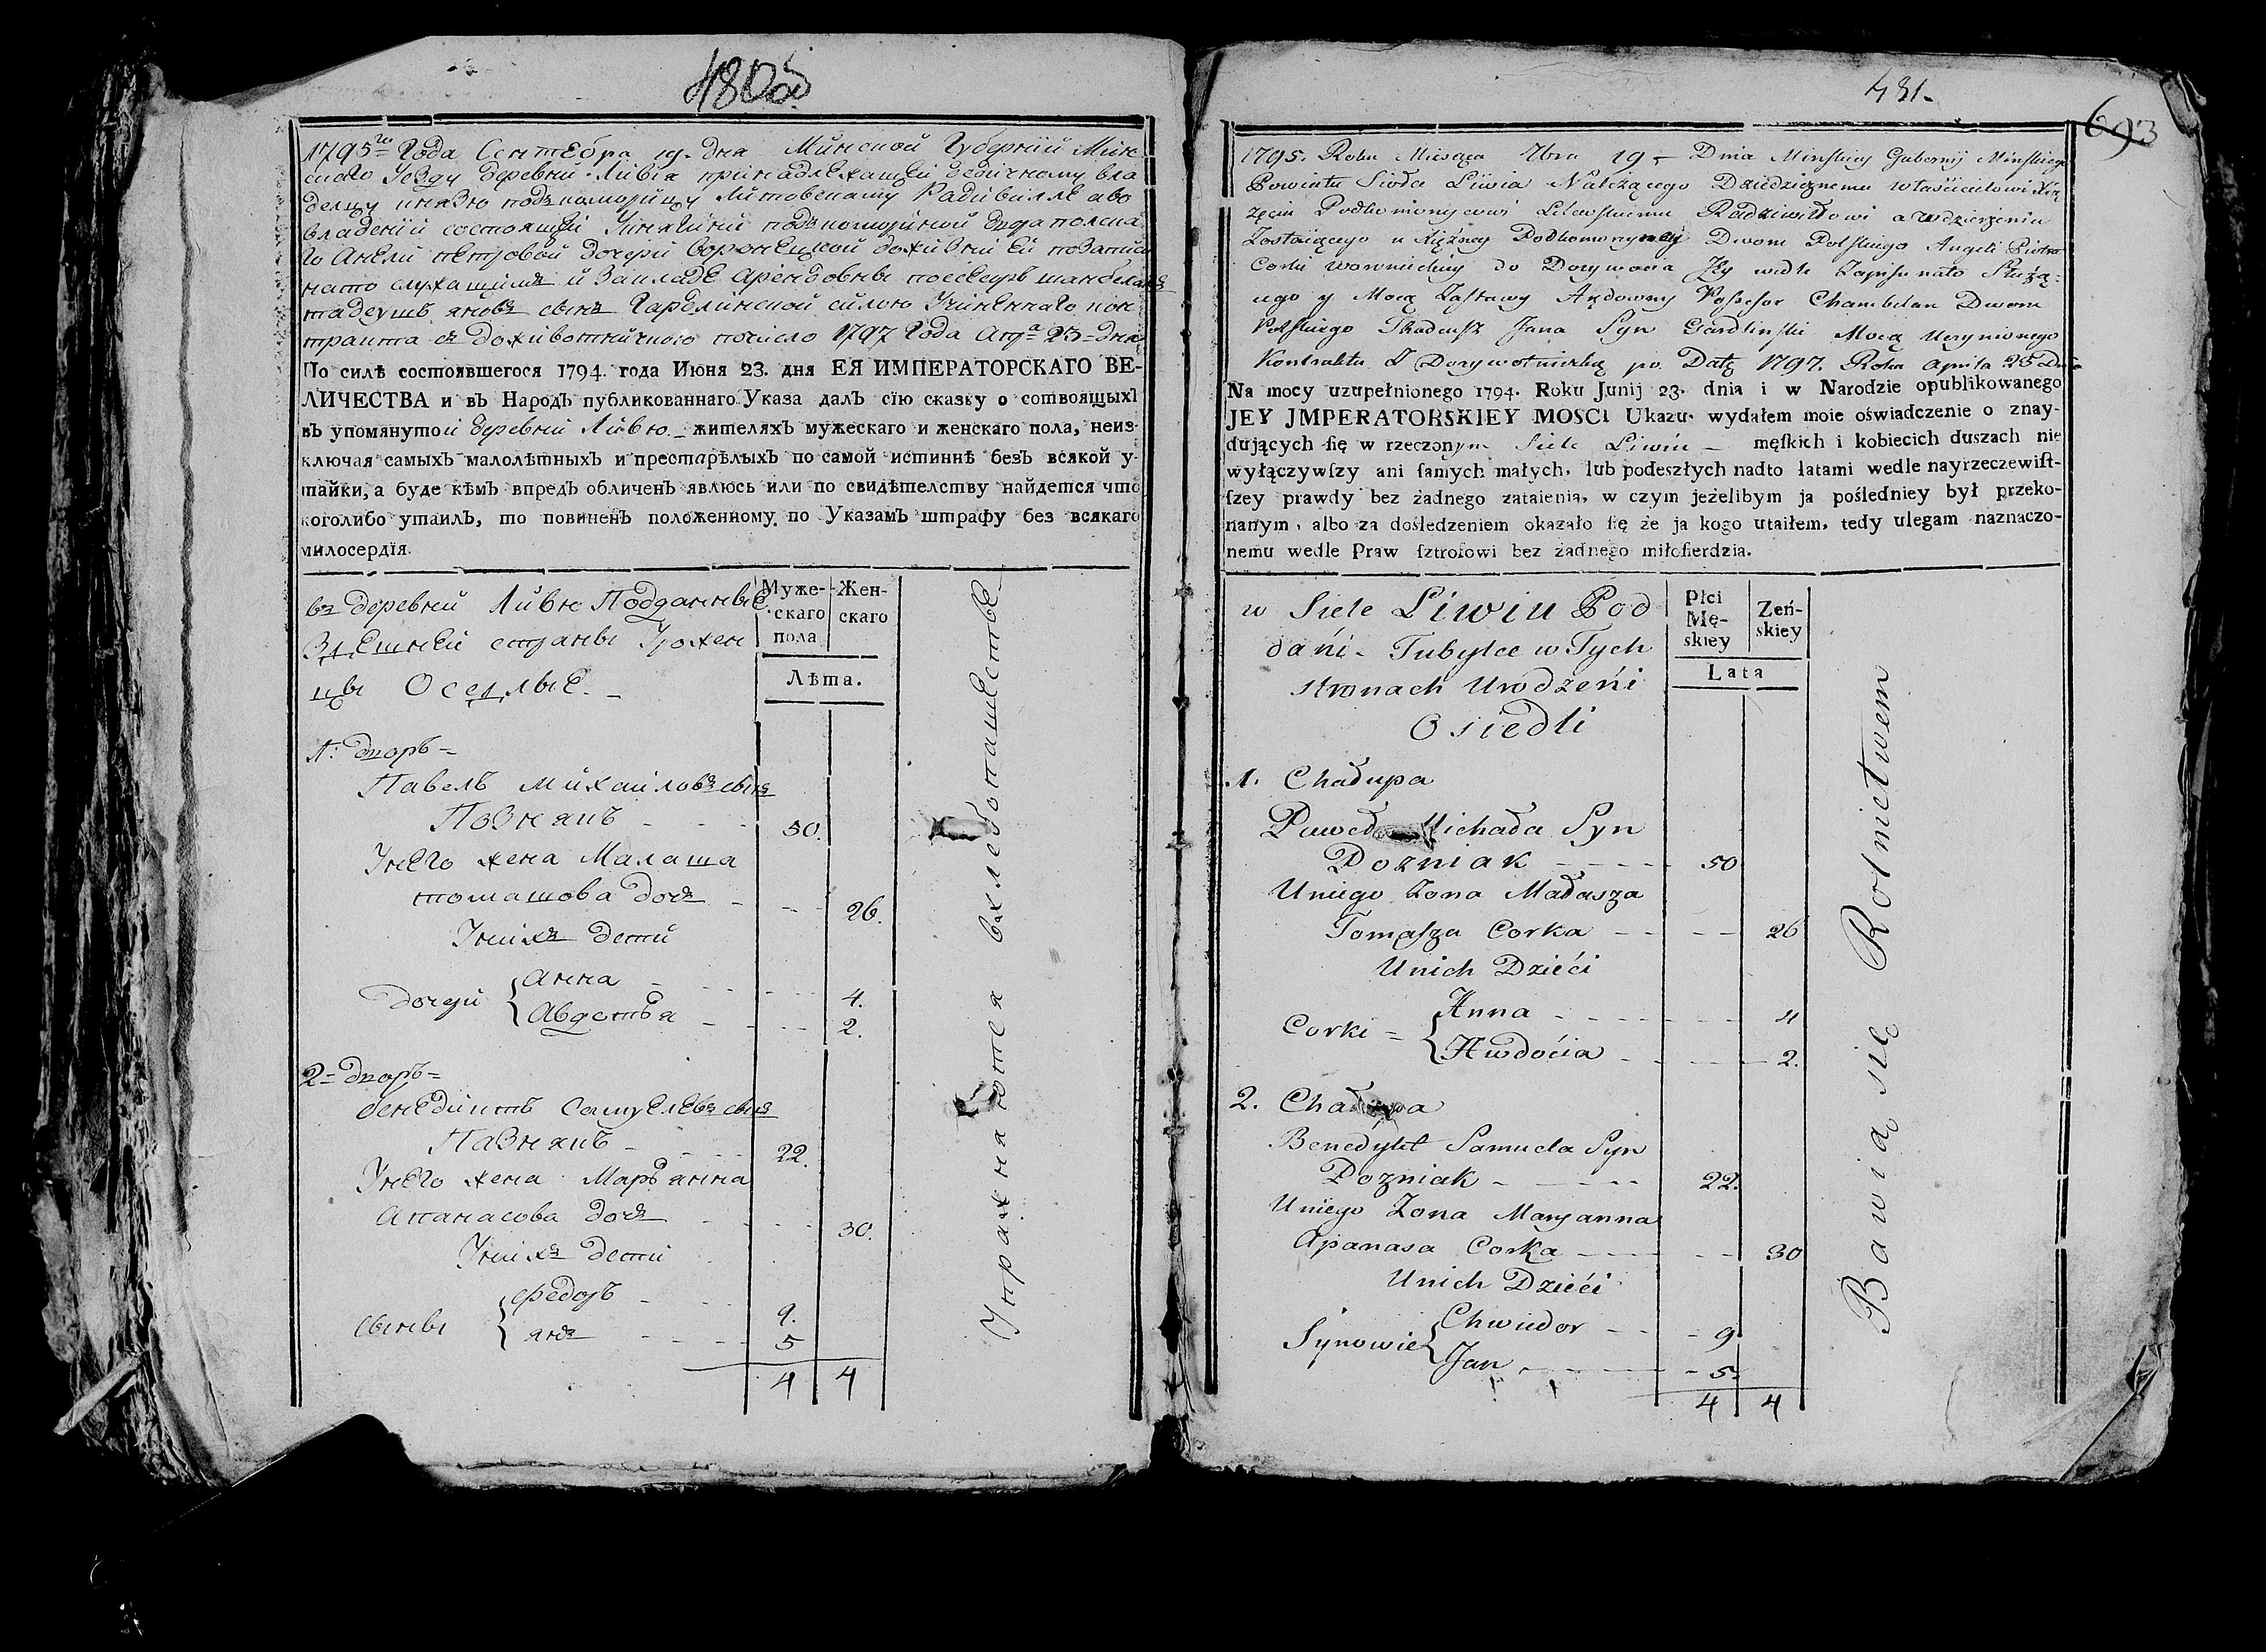 480об
1795го Года Сентебра 19. дна Минской Губернии Мин
скаго Уезду деревни Ливіа принадлежащей дедичному вла
делцу князю подъкоморйму Литовскаму Радівилле а во
владении состоящей Укнягині подъкоморйной двора полска
го Анели петровой дочери воронецкой доживнй Ей по записи
на то служащимъ и Заставе Арендовны посесеръ шамбеланъ
тадеушъ яновъ сынъ Гарблинской силою Учиненнаго кон
тракта съ доживотничкою почисло 1797 Года апр 23 дна
По силѣ состоявшегося 1794. года Июня 23. дня ЕЯ ИМПЕРАТОРСКАГО ВЕ-
ЛИЧЕСТВА и въ Народъ публикованнаго Указа далъ сїю сказку о состоящыхъ
въ упомянутой деревни Ливю жителяхъ мужескаго и женскаго пола, неиз-
ключая самыхъ малолѣтныхъ и престарѣлыхъ по самой истиннѣ безъ всякой у-
тайки, а буде кѣмъ впредь обличенъ явлюсь или по свидѣтелству найдется что
коголибо утаилъ, то повиненъ положенному по Указамъ штрафу без всякаго
милосердїя.
въ деревни Ливю Подданные
Здешней страны Урожен
цы Оседлые.
Муже-
скаго
пола
Жен-
скаго
Лѣта.
1: дворъ
Павелъ Михаиловъ сынъ
Познякъ 50.
Унего жена Малаша
томашова дочъ 26.
Унихъ дети
дочери { Анна 4.
Авдотья 2.
2 дворъ
бенедиктъ Самуелевъ сынъ
Пазнякъ 22.
Унего жена Марьянна
Апанасова дочъ 30.
Унихъ дети
сыны { федоръ 9.
янъ 5
4 4
Упражнаются в хлебопашестве
481.
693
1795. Roku Miesąca 7bra 19 Dnia Minskiey Gubernij Minskiego
Powiatu Siołca Liwia Należącego Dziedzicznemu właścicielowi Xią
zęciu Podkomorzemu Litewskiemu Radziwiłłowi a w dzierżeniu
Zostaiącego u Xiężney Podkomorzyney Dworu Polskiego Angeli Piotra
Corki Woronieckiey do Dozywocia Jey wedle Zapisu nato Służą-
cego y Mocą Zastawy Arędowny Possesor Chambelan Dworu
Polskiego Thadeusz Jana Syn Gardliński Mocą Uczynionego
Kontraktu Z Dozywotniczką po Datę 1797. Roku Aprila 23 Dn
Na mocy uzupełnionego 1794. Roku Junij 23. dnia i w Narodzie opublikowanego
JEY JMPERATORSKIEY MOSCI Ukazu. wydałem moie oświadczenie o znay-
dujących ſię w rzeczonym Siele Liwiu męſkich i kobiecich duszach nie
wyłączywſzy ani ſamych małych, lub podeszłych nadto latami wedle nayrzeczewiſt-
ſzey prawdy bez żadnego zataienia, w czym jeżelibym ja pośledniey był przeko-
nanym, albo za dośledzeniem okazało ſię że ja kogo utaiłem, tedy ulegam naznaczo-
nemu wedle Praw ſztrofowi bez żadnego miłoſierdzia.
w Siele Liwiu Pod
dańi Tubylce w Tych
stronach Urodzeńi
Osiedli
Płci
Mę-
skiey
Zeń-
skiey
Lata
1. Chałupa
Paweł Michała Syn
Pozniak 50
Uniego Zona Małasza
Tomasza Corka 26
Unich Dzieći
Corki { Anna 4
Awdoćia 2.
2. Chałupa
Benedykt Samuela Syn
Pozniak 22.
Uniego Zona Maryanna
Apanasa Corka 30
Unich Dzieći
Synowie { Chwiedor 9
Jan 5.
4 4
Bawią się Rolnictwem